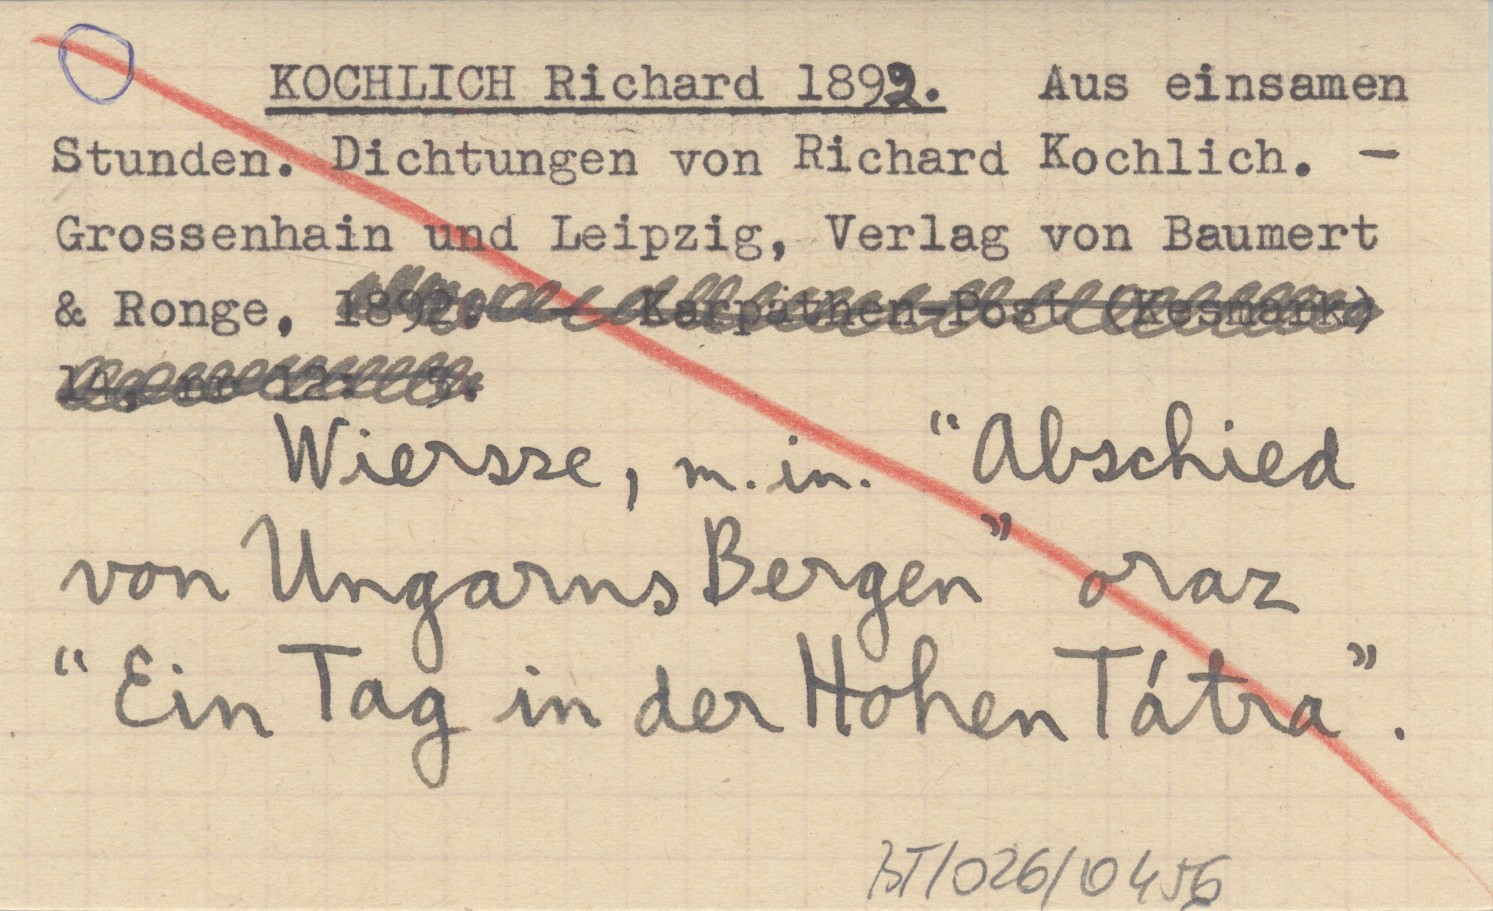 KOCHLICH Richard 1892. Aus einsamen
Stunden. Dichtungen von Richard Kochlich. —
Grossenhain und Leipzig, Verlag von Baumert
& Ronge, 1892. — Karpathen-Post (Kesmark)
14, nr 12: 3.
Wiersze, m.in. “Abschied
von Ungarns Bergen” oraz
“Ein Tag in der Hohen Tátra”.
/026/0456